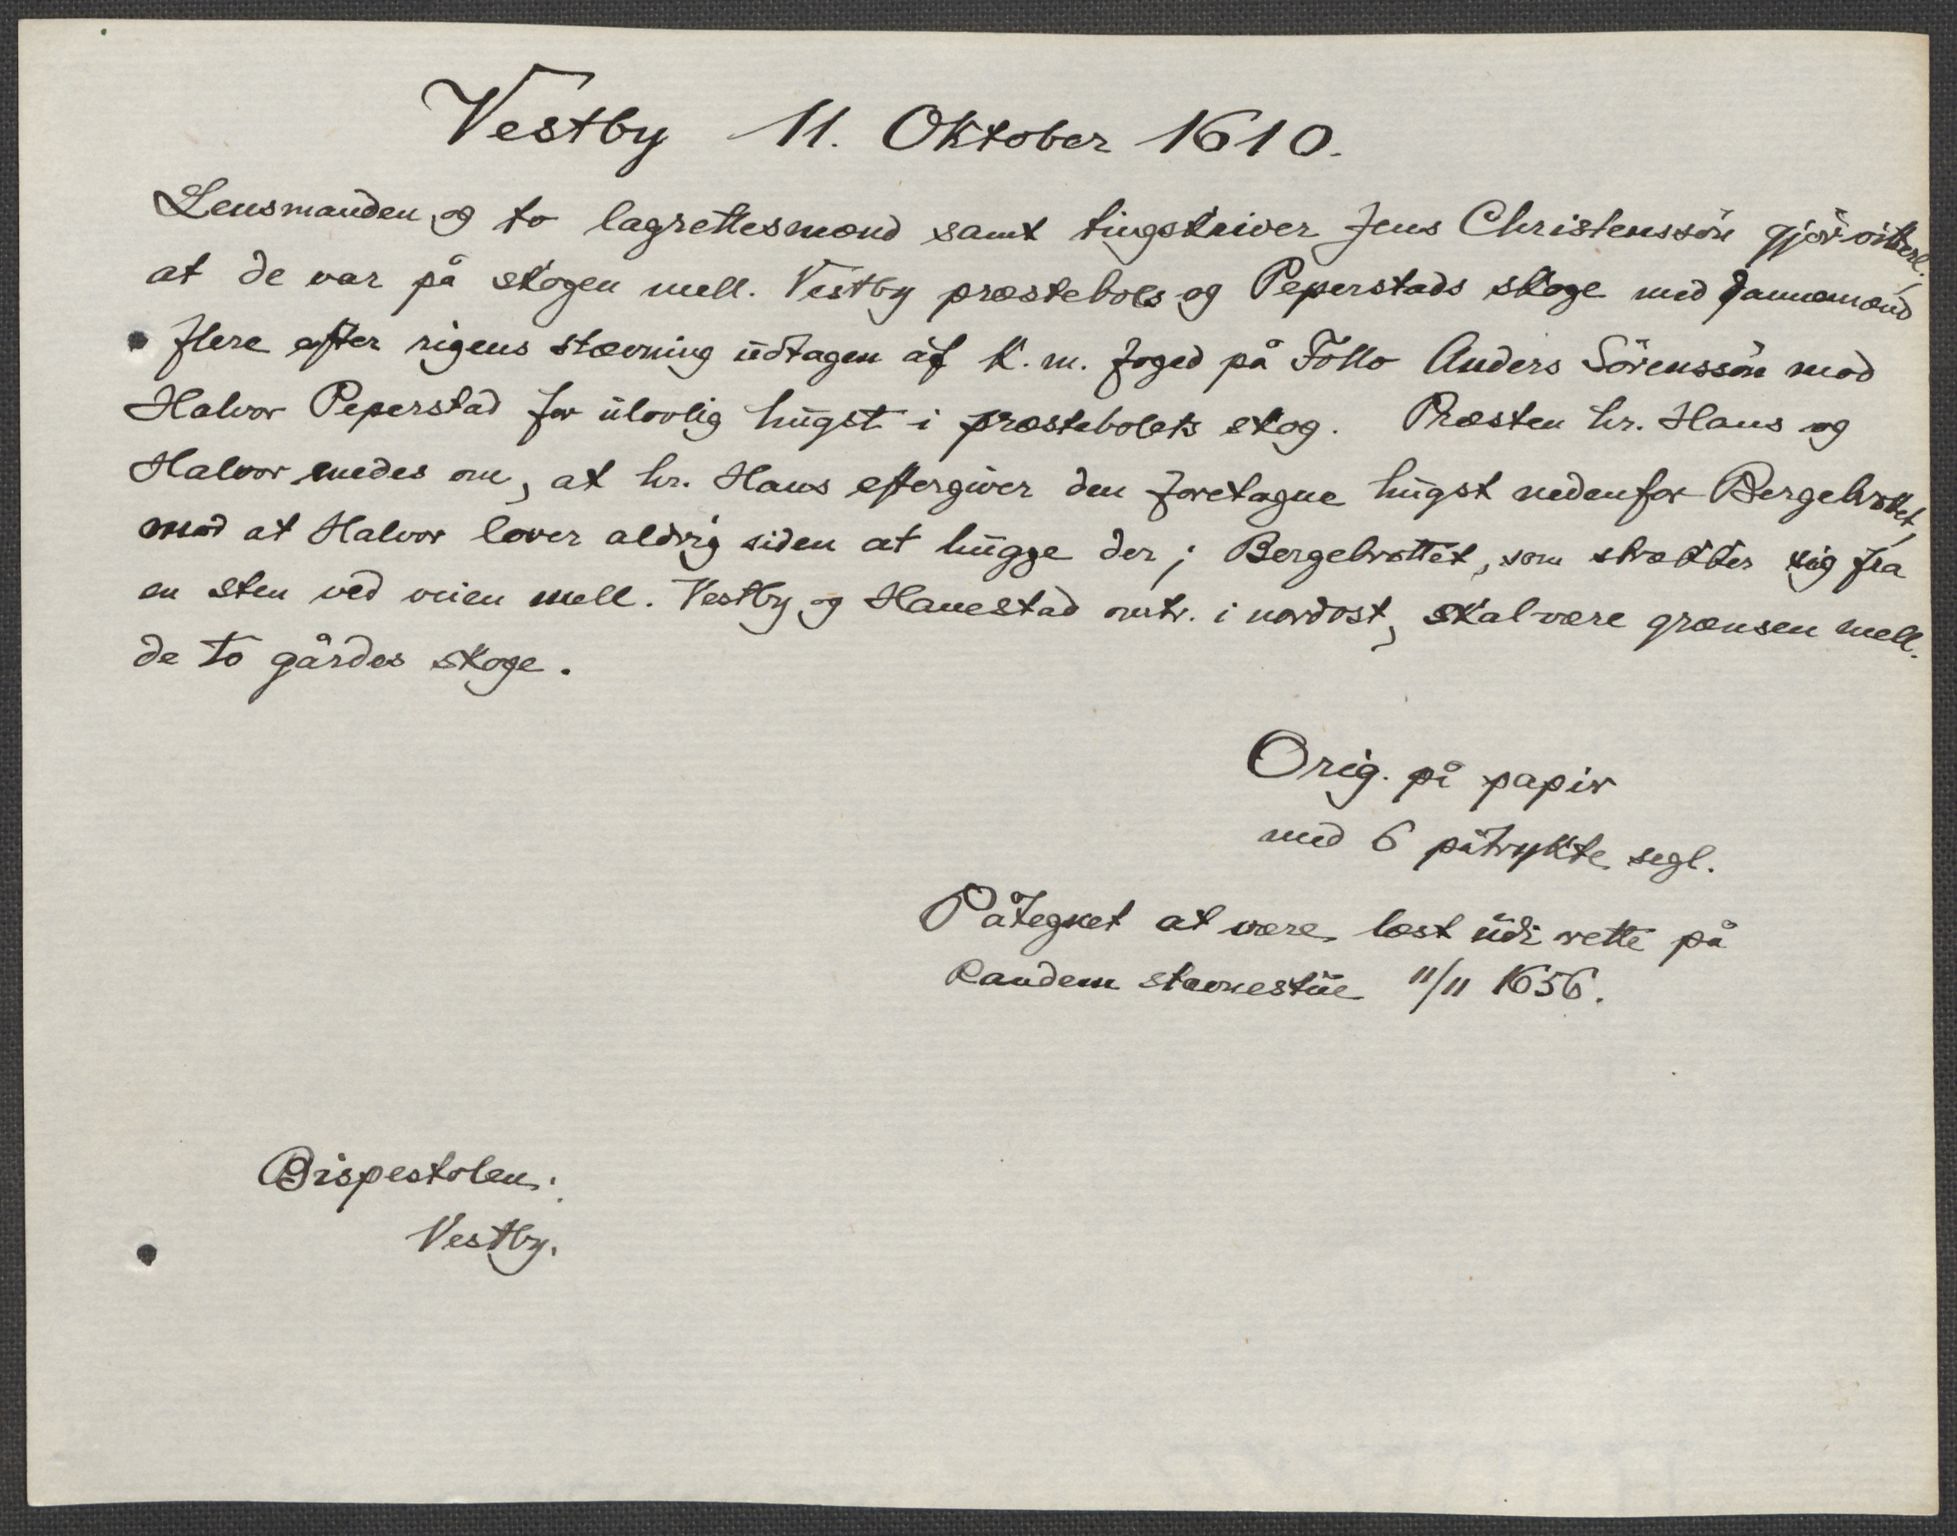 Vestby 11. Oktober 1610.
Lensmanden og to lagrettesmænd samt tingskriver Jens Christenssön gjör vitterl.
at de var på skogen mell. Vestby præstebols og Peperstads skoge med dannemænd
flere efter rigens stævning udtagen af K. m. foged på Follo Anders Sörenssön mod
Halvor Peperstad for ulovlig hugst i præstebolets skog. Præsten hr. Hans og
Halvor enedes om, at hr. Hans eftergiver den foretagne hugst nedenfor Bergebrottet,
mod at Halvor lover aldrig siden at hugge der; Bergebrottet, som strækker sig fra
en sten ved veien mell. Vestby og Hanestad omtr. i nordost, skal være grænsen mell.
de to gårdes skoge.
Orig. på papir
med 6 påtrykte segl.
Påtegnet at være læst udi rette på
Randem stævnestue 11/11 1656.
Bispestolen:
Vestby.